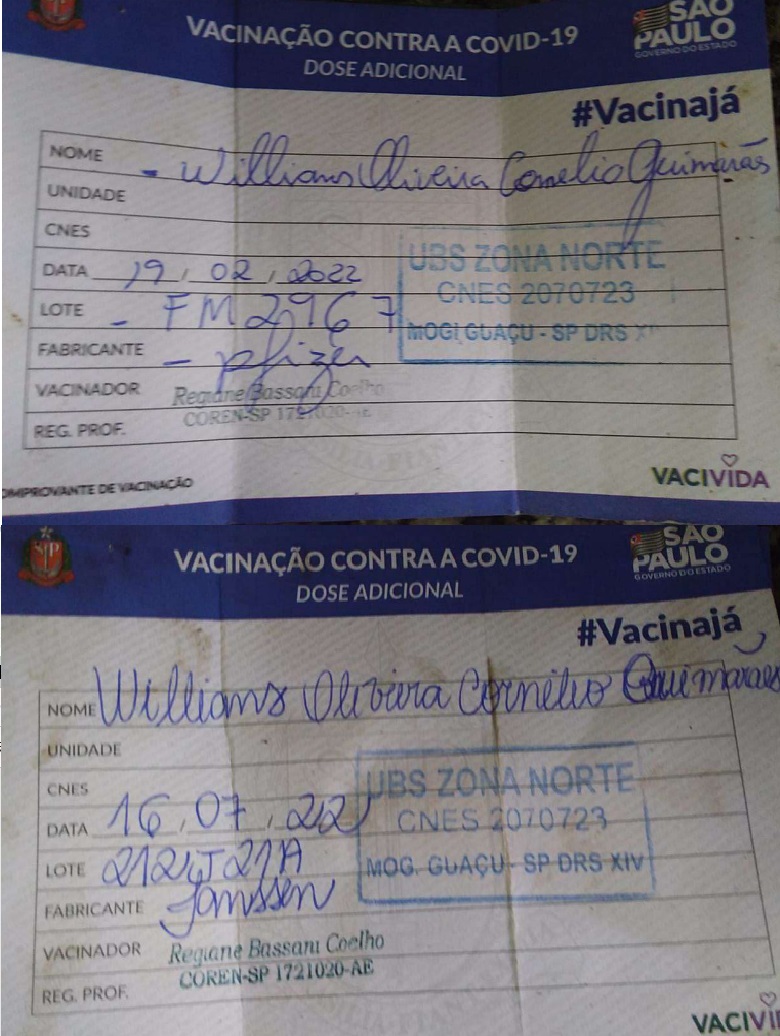 VACINAÇÃO CONTRA A COVID-19
DOSE ADICIONAL
SÃO
PAULO
GOVERNO DO ESTADO
#Vacinajá
NOME - Willians Oliveira Cornelio Guimarãs
UNIDADE
CNES
DATA 19, 02, 2022
LOTE - FM2967
FABRICANTE - pfizer
VACINADOR Regiane Bassani Coelho
COREN-SP 1721020-AE
REG. PROF.
UBS ZONA NORTE
CNES 2070723
MOGI GUAÇU - SP DRS
OMPROVANTE DE VACINAÇÃO
VACIVIDA
VACINAÇÃO CONTRA A COVID-19
DOSE ADICIONAL
SÃO
PAULO
GOVERNO DO ESTADO
#Vacinajá
NOME Willians Oliveira Cornélio Guimarães
UNIDADE
CNES
DATA 16, 07, 22
LOTE
FABRICANTE Janssen
VACINADOR Regiane Bassani Coelho
COREN-SP 1721020-AE
REG. PROF.
UBS ZONA NORTE
CNES 2070723
MOG. GUAÇU - SP DRS XIV
VACIVI